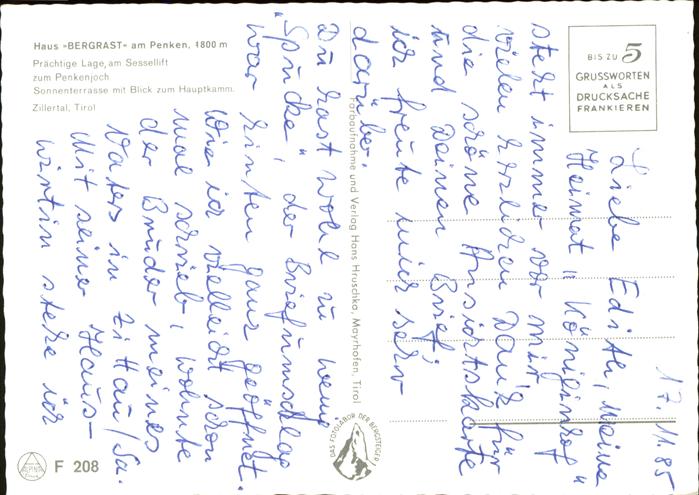 Haus »BERGRAST« am Penken, 1800 m
Prächtige Lage, am Sessellift
zum Penkenjoch.
Sonnenterrasse mit Blick zum Hauptkamm.
Zillertal, Tirol
BIS ZU 5
GRUSSWORTEN
ALS
DRUCKSACHE
FRANKIEREN
17.11.85
Liebe Edith, meine
Heimat "Königinhof"
steht immer vor mir
vielen herzlichen Dank für
die schöne Ansichtskarte
und Deinen Brief;
ich freute mich sehr
darüber.
Du hast wohl zu wenig
"Spucke", der Briefumschlag
war hinten ganz geöffnet.
Wie ich vielleicht schon
mal schrieb, wohnte
der Bruder meines
Vaters in Zittau/Sa.
Mit seiner Haus-
wirtin stehe ich
Farbaufnahme und Verlag Hans Hruschka, Mayrhofen, Tirol
DAS FOTOLABOR DER BERGSTEIGER
F 208